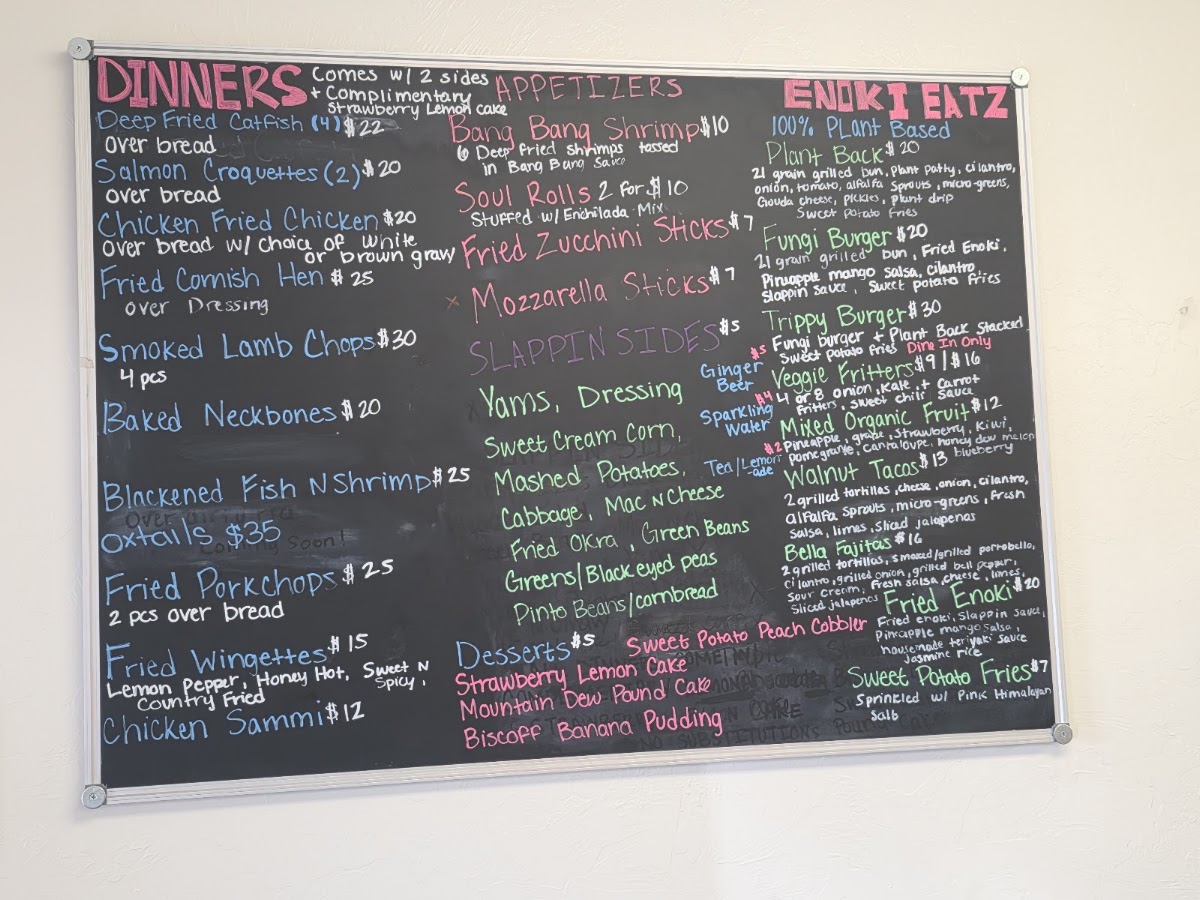 DINNERS
Comes w/ 2 sides
+ Complimentary
Strawberry Lemon Cake
Deep Fried Catfish (4) $22
over bread
Salmon Croquettes (2) $20
over bread
Chicken Fried Chicken $20
over bread w/ choice of white
or brown gravy
Fried Cornish Hen $25
over Dressing
Smoked Lamb Chops $30
4 pcs
Baked Neckbones $20
Blackened Fish N Shrimp $25
oxtails $35
Coming Soon!
Fried Porkchops $25
2 pcs over bread
Fried Wingettes $15
Lemon Pepper, Honey Hot, Sweet N
Spicy,
Country Fried
Chicken Sammi $12
APPETIZERS
Bang Bang Shrimp $10
6 Deep fried shrimps tossed
in Bang Bang Sauce
Soul Rolls 2 for $10
Stuffed w/ Enchilada Mix
Fried Zucchini Sticks $7
x Mozzarella Sticks $7
SLAPPIN SIDES $5
Yams, Dressing
Sweet Cream Corn,
Mashed Potatoes,
Cabbage, Mac N Cheese
Fried Okra, Green Beans
Greens/Black eyed peas
Pinto Beans/cornbread
$5
Ginger
Beer
$4
Sparkling
Water
$2
Tea/Lemon
-ade
Desserts $5
Sweet Potato Peach Cobbler
Strawberry Lemon Cake
Mountain Dew Pound Cake
Biscoff Banana Pudding
NO SUBSTITUTIONS
ENOKI EATZ
100% Plant Based
Plant Back $20
21 grain grilled bun, Plant patty, cilantro,
onion, tomato, alfalfa sprouts, micro-greens,
Gouda cheese, pickles, plant drip
Sweet Potato fries
Fungi Burger $20
21 grain grilled bun, Fried Enoki,
Pineapple mango salsa, cilantro,
Slappin Sauce, Sweet potato fries
Trippy Burger $30
Fungi burger + Plant Back Stacked
Sweet Potato fries Dine In Only
Veggie Fritters $9/$16
4 or 8 onion, Kale, + Carrot
Fritters, sweet chili sauce
Mixed Organic Fruit $12
Pineapple, grape, strawberry, kiwi,
pomegranate, cantaloupe, honey dew melon
blueberry
Walnut Tacos $13
2 grilled tortillas, cheese, onion, cilantro,
alfalfa sprouts, micro-greens, fresh
salsa, limes, sliced jalapenas
Bella Fajitas $16
2 grilled tortillas, smoked/grilled portobello,
cilantro, grilled onion, grilled bell pepper,
sour cream, fresh salsa, cheese, limes,
Sliced jalapenas
Fried Enoki $20
Fried enoki, Slappin sauce,
Pineapple mango salsa,
housemade teriyaki sauce
Jasmine rice
Sweet Potato Fries $7
Sprinkled w/ Pink Himalayan
Salt